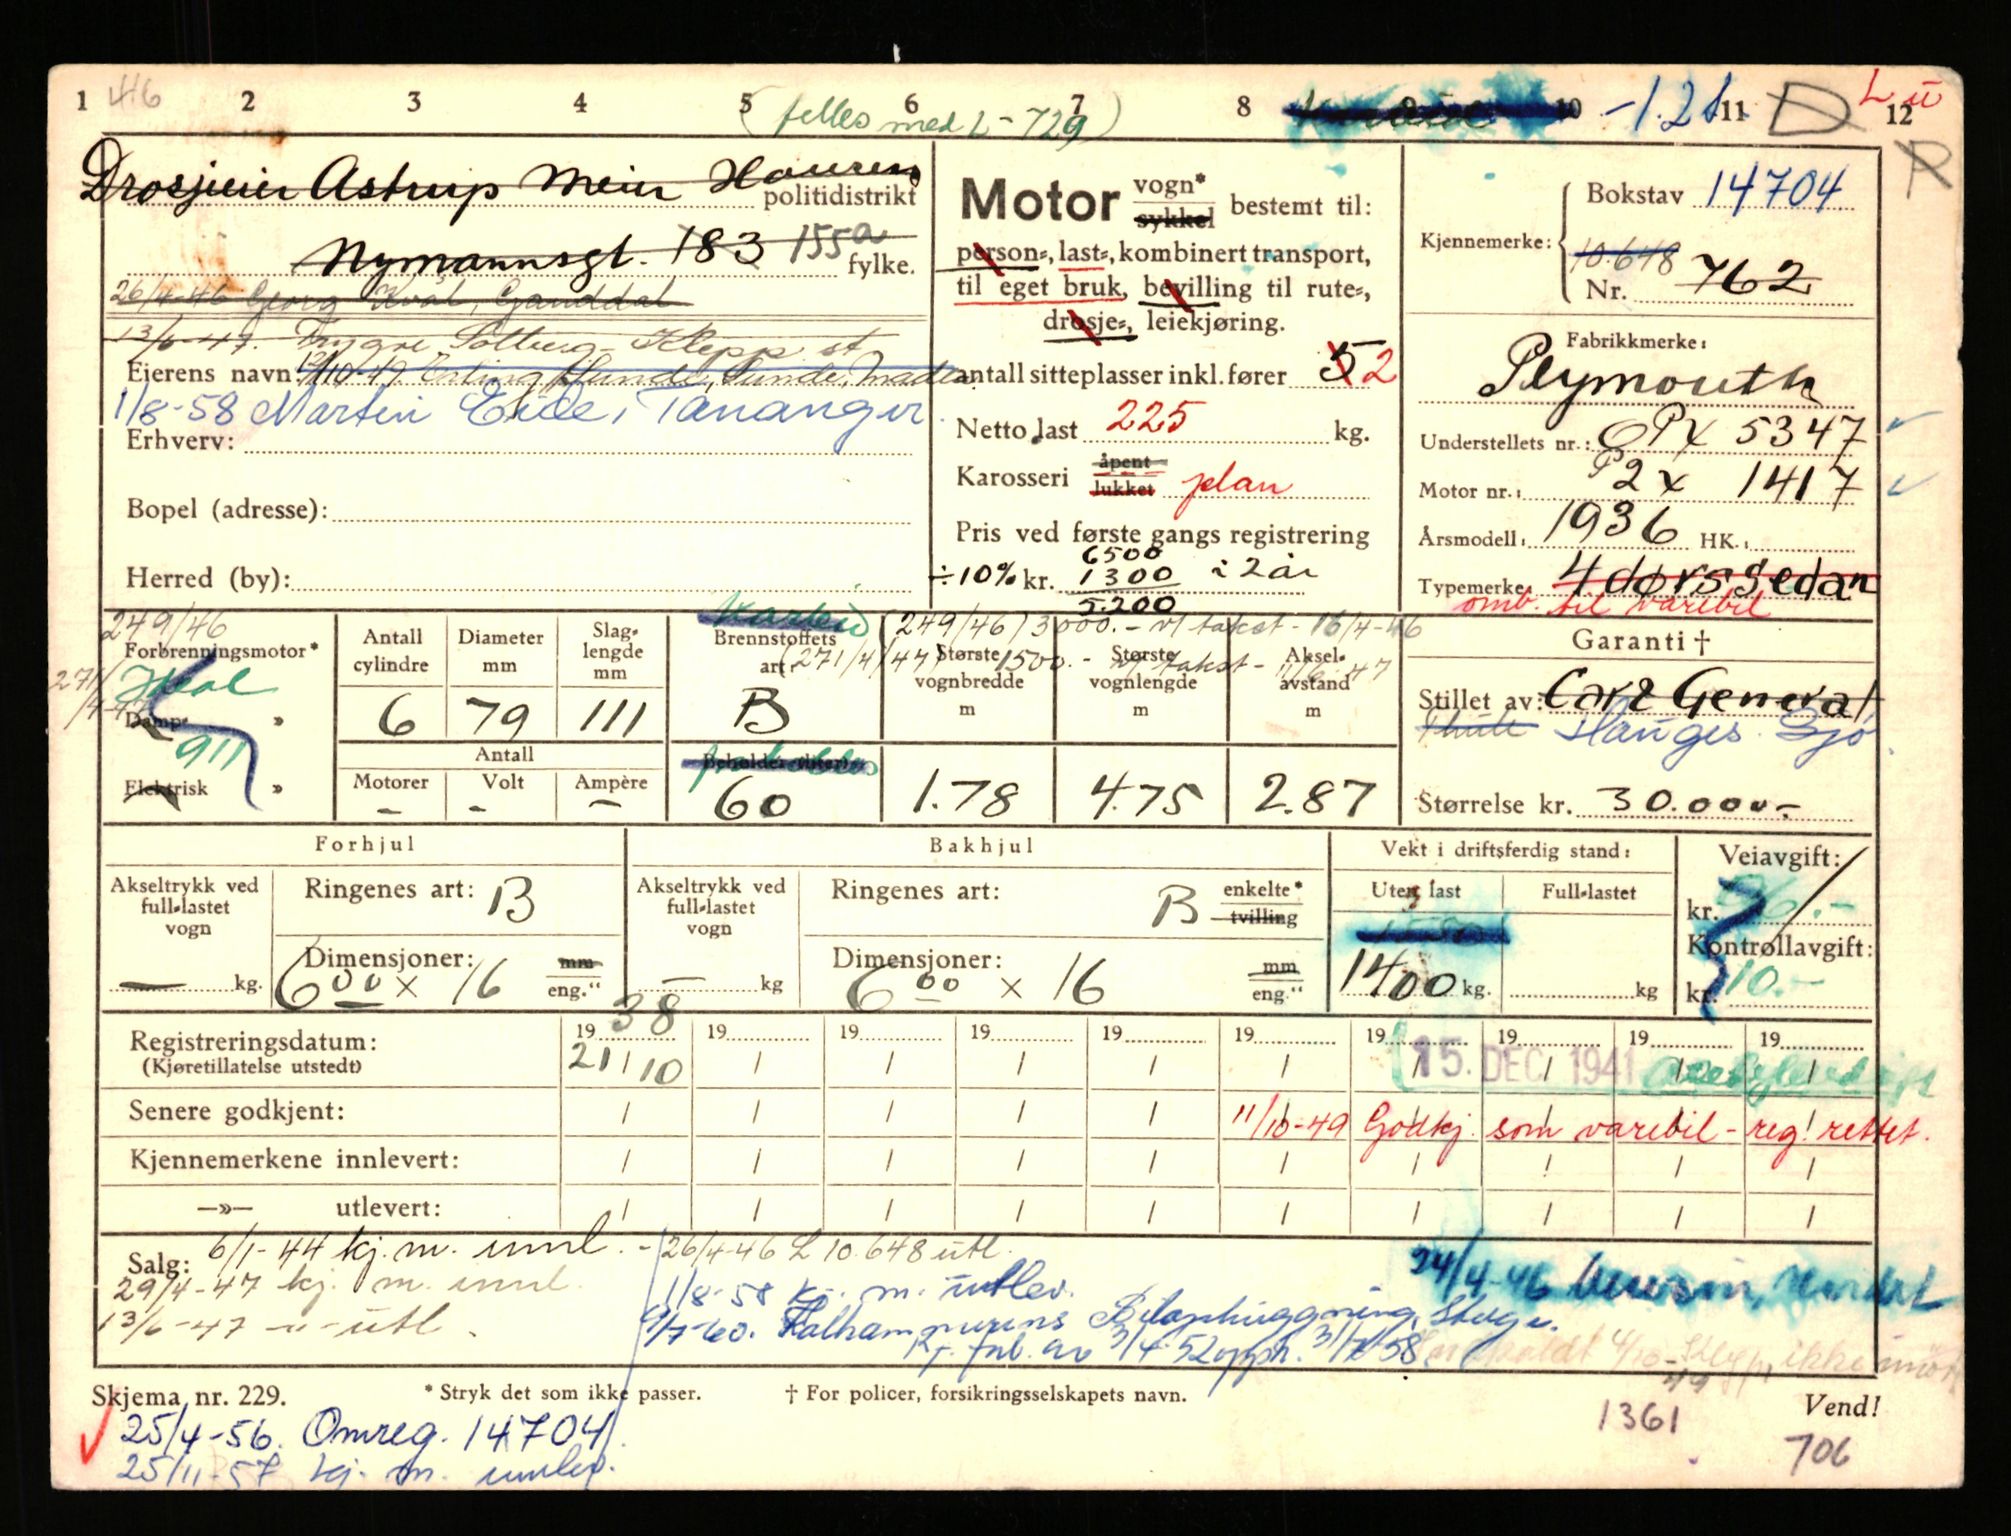 1 46 2 3 4 5 6 7 8 9 10 -1.21. 11 D L ū 12
(felles med L-729)
R
Drosjeeier Astrup Meier Hansen
politidistrikt
Nymannsgt. 183 155a
fylke.
26/4-46 Georg Kvål, Ganddal
13/6-47. Yngve Solberg - Klepp st
Eierens navn 12/10-49 Erling Sunde, Sunde, Madla.
1/8-58 Martin Eide, Tananger
Erhverv:
Bopel (adresse):
Herred (by):
Motor vogn* sykkel bestemt til:
person-, last-, kombinert transport,
til eget bruk, bevilling til rute-,
drosje-, leiekjøring.
antall sitteplasser inkl. fører 5 2
Netto last 225 kg.
Karosseri åpent lukket plan
Pris ved første gangs registrering
6500
÷10% kr. 1300 i 2 år
5.200
Kjennemerke: Bokstav 14704
10.648
Nr. 762
Fabrikkmerke:
Plymouth
Understellets nr.: OPX 5347
Motor nr.: P2x 1417
Årsmodell: 1936 HK.:
Typemerke: 4dørs sedan
omb. til varebil
249/46
Forbrenningsmotor*
271/4-47
Damp- »
911
Elektrisk »
Antall cylindre 6
Diameter mm 79
Slaglengde mm 111
Antall
Motorer - Volt - Ampère -
Brennstoffets art B
Beholder (liter):
60
(249/46) 3000.- v/ takst - 16/4-46
(271/4/47) 1500.- v/ takst - 11/6-47
Største vognbredde m 1.78
Største vognlengde m 4.75
Akselavstand m 2.87
Garanti †
Stillet av: Carl General
Hauges. Sjø.
Størrelse kr. 30.000.-
Forhjul
Akseltrykk ved full-lastet vogn — kg.
Ringenes art: B
Dimensjoner: 6.00 x 16 mm eng."
Bakhjul
Akseltrykk ved full-lastet vogn — kg
Ringenes art: B enkelte* tvilling
Dimensjoner: 6.00 x 16 mm eng."
Vekt i driftsferdig stand:
Uten last Full-lastet
1400 kg. kg
Veiavgift:
kr. 36.-
Kontrollavgift:
kr. 10.-
Registreringsdatum: 19 38 19 19 19 19 19 19 19 19 19
(Kjøretillatelse utstedt) 21/10 15. DEC. 1941
Senere godkjent: 11/10-49 Godkj. som varebil - reg! rettet.
Kjennemerkene innlevert:
—»— utlevert:
Salg: 6/1-44 kj.m. innl. - 26/4-46 L 10.648 utl.
29/4-47 kj. m. innl.
13/6-47 -"- utl.
1/8-58 kj. m. utlev.
9/7-60. Kalhammerens Bilophuggning, Stvgr.
24/4-46
Skjema nr. 229. * Stryk det som ikke passer. † For policer, forsikringsselskapets navn.
Vend!
25/4-56. Omreg. 14704
25/11-57 kj. m. innlev.
1361
706